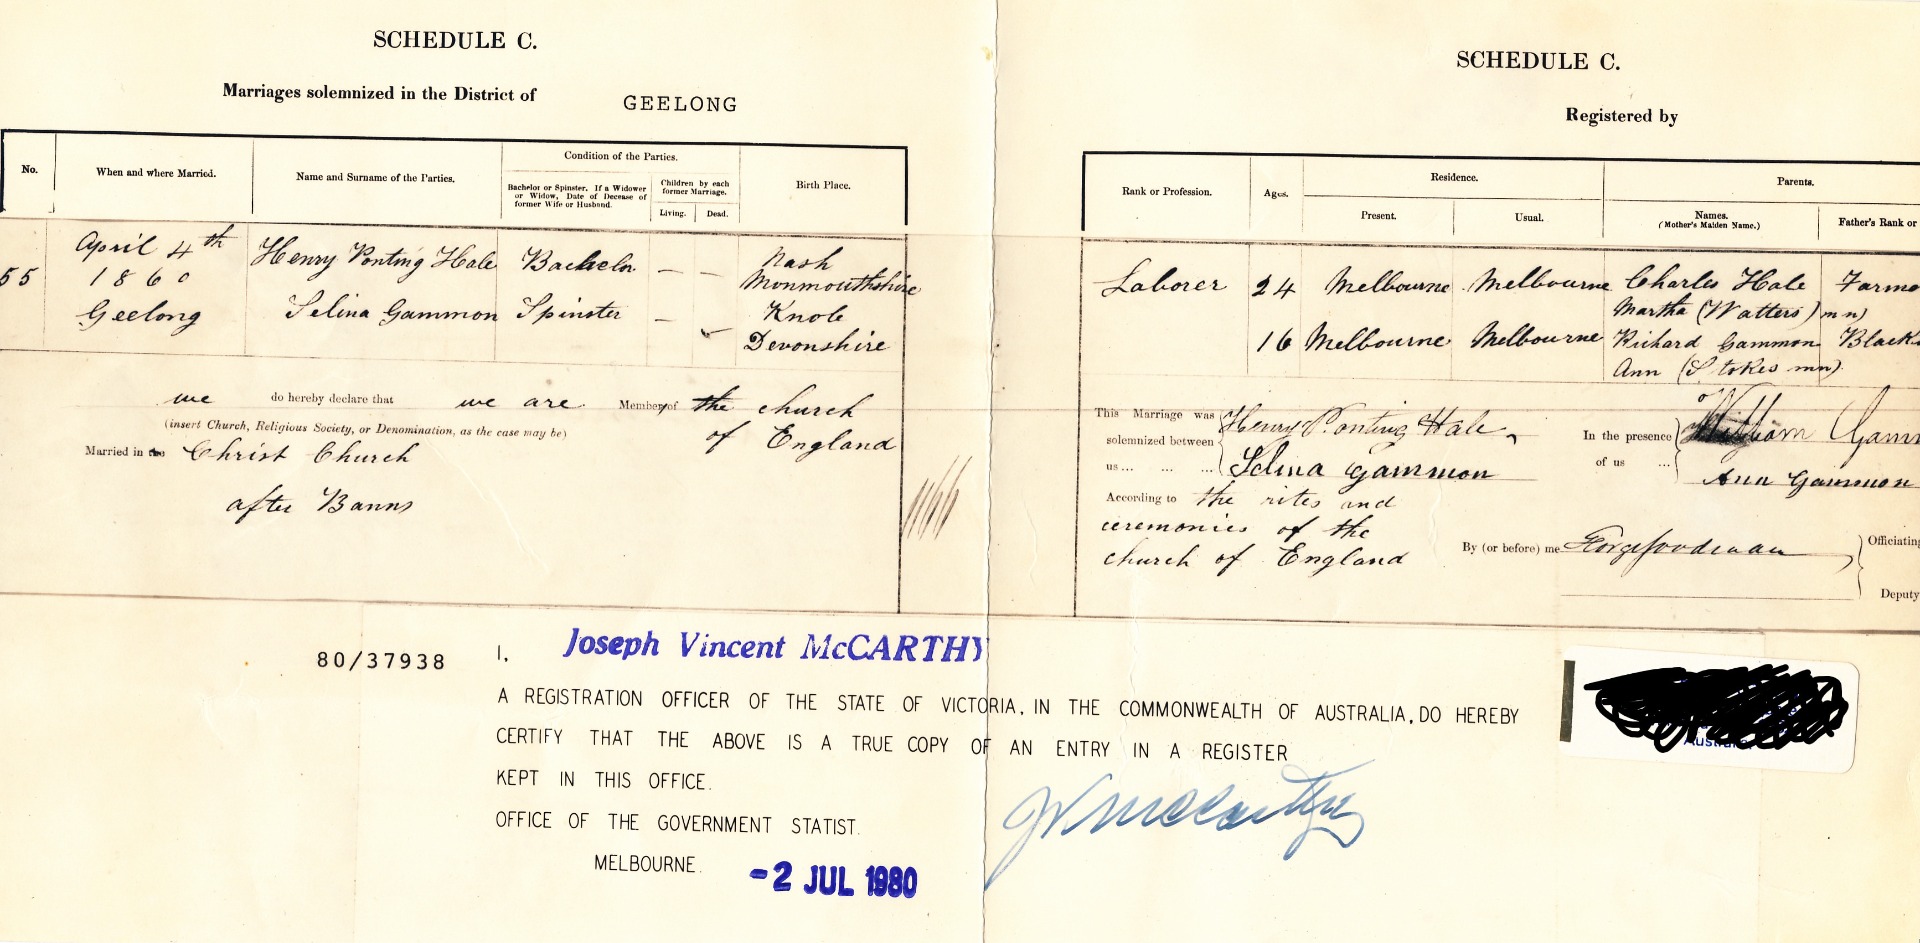 SCHEDULE C.
Marriages solemnized in the District of GEELONG
No.
When and where Married.
Name and Surname of the Parties.
Condition of the Parties.
Bachelor or Spinster. If a Widower
or Widow, Date of Decease of
former Wife or Husband.
Children by each
former Marriage.
Living.
Dead.
Birth Place.
55
April 4th
1860
Geelong
Henry Ponting Hale
Bachelor
— —
Nash
Monmouthshire
Selina Gammon
Spinster
—
Knole
Devonshire
we do hereby declare that we are Member of the church
(insert Church, Religious Society, or Denomination, as the case may be)
of England
Married in the Christ Church
after Banns
SCHEDULE C.
Registered by
Rank or Profession.
Ages.
Residence.
Present.
Usual.
Parents.
Names.
(Mother's Maiden Name.)
Father's Rank or
Laborer
24
Melbourne
Melbourne
Charles Hale
Martha (Watters) mn)
Farme
16
Melbourne
Melbourne
Richard Gammon
Ann (Stokes mn).
Black
This Marriage was
solemnized between
us... ... ...
Henry Ponting Hale
Selina Gammon
In the presence
of us ...
William Gamm
Ann Gammon
According to the rites and
ceremonies of the
church of England
By (or before) me George Goodman
Officiating
Deputy
80/37938
I, Joseph Vincent McCARTHY
A REGISTRATION OFFICER OF THE STATE OF VICTORIA, IN THE COMMONWEALTH OF AUSTRALIA, DO HEREBY
CERTIFY THAT THE ABOVE IS A TRUE COPY OF AN ENTRY IN A REGISTER
KEPT IN THIS OFFICE.
OFFICE OF THE GOVERNMENT STATIST.
MELBOURNE.
-2 JUL 1980
JV McCarthy